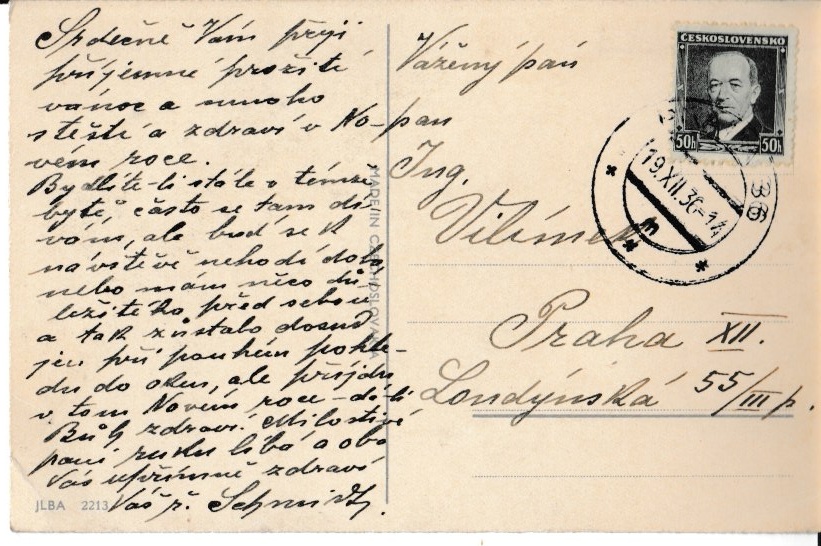 Srdečně Vám přeji
příjemné prožití
vánoc a mnoho
štěstí a zdraví v No-
vém roce.
Bydlíte-li stále v témže
bytě, často se tam dí-
vám, ale buď se k
návštěvě nehodí doba
nebo mám něco dů-
ležitého před sebou
a tak zůstalo dosud
jen při pouhém pohle-
du do oken, ale přijdu
v tom Novém roce - dá-li
Bůh zdraví. Milostivé
paní ruku líbá a oba
Vás upřímně zdraví
Váš ř. Schmidt.
JLBA 2213
MADE IN CZECHOSLOVAKIA
ČESKOSLOVENSKO
50h 50h
19.XII.36-14
Vážený pán
pan
Ing.
Vilímek
Praha XII.
Londýnská 55/III p.